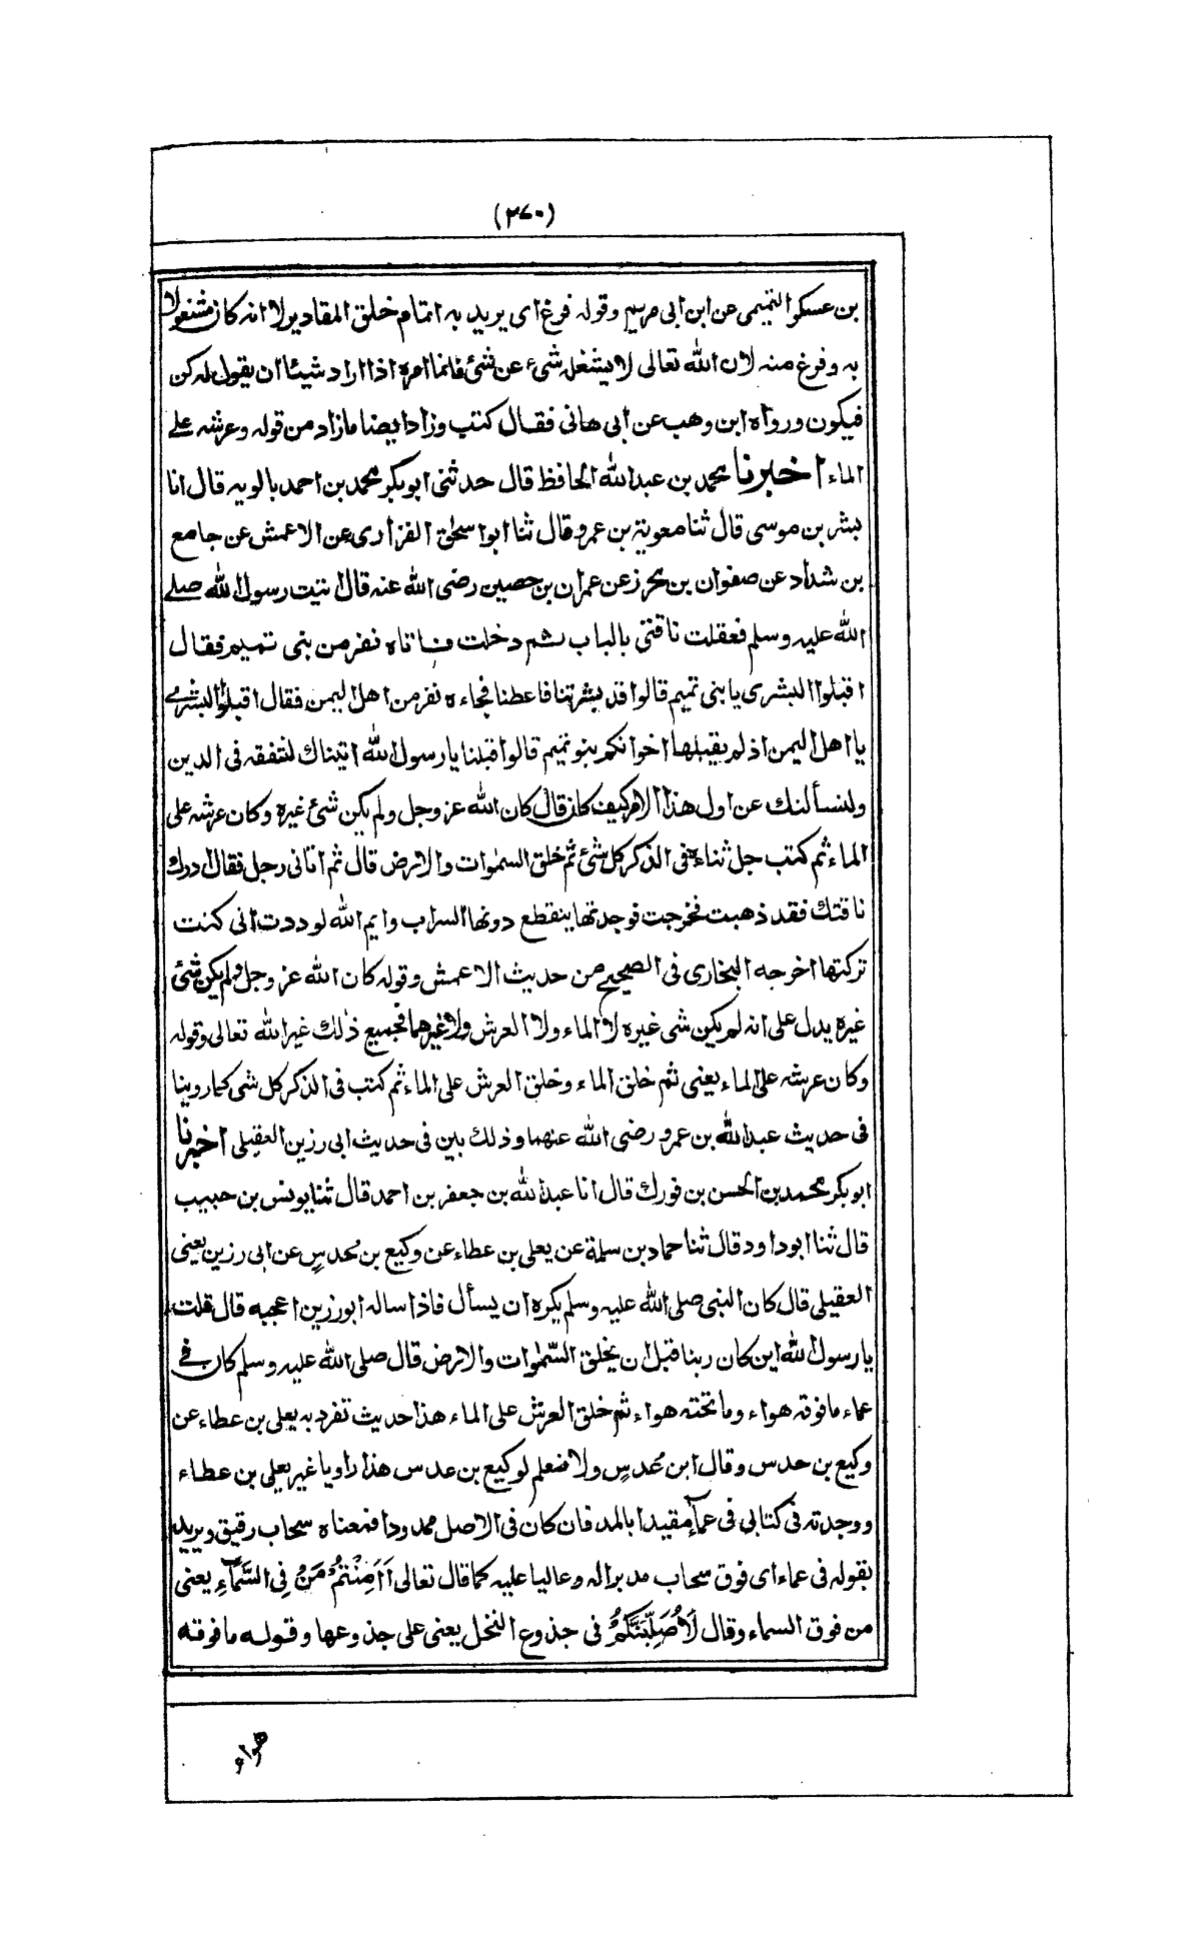 (۲۷۰)
بن عسكر التميمى عن ابن ابى مريم وقوله فرغ اى يريد به اتمام خلق المقادير لا انه كان مشغولا
به وفرغ منه لان الله تعالى لا يشغله شىء عن شئ فانما امره اذا اراد شيئا ان يقول له كن
فيكون ورواه ابن وهب عن ابى هانى فقال كتب وزاد ايضا ما زاد من قوله وعرشه على
الماء اخبرنا محمد بن عبد الله الحافظ قال حدثنى ابو بكر محمد بن احمد بالويه قال انا
بشر بن موسى قال ثنا معوية بن عمرو قال ثنا ابو اسحٰق الفزارى عن الاعمش عن جامع
بن شداد عن صفوان بن محرز عن عمران بن حصين رضى الله عنه قال اتيت رسول الله صلى
الله عليه وسلم فعقلت ناقتى بالباب ثم دخلت فاتاه نفر من بنى تميم فقال
اقبلوا البشرى يا بنى تميم قالوا قد بشرتنا فاعطنا فجاءه نفر من اهل اليمن فقال اقبلوا البشرى
يا اهل اليمن اذ لم يقبلها اخوانكم بنو تميم قالوا قبلنا يا رسول الله اتيناك لنتفقه فى الدين
ولنسألنك عن اول هذا الامر كيف كان قال كان الله عز وجل ولم يكن شئ غيره وكان عرشه على
الماء ثم كتب جل ثناءه فى الذكر كل شئ ثم خلق السمٰوات والارض قال ثم اتانى رجل فقال ادرك
ناقتك فقد ذهبت فخرجت فوجدتها ينقطع دونها السراب وايم الله لوددت انى كنت
تركتها اخرجه البخارى فى الصحيح من حديث الاعمش وقوله كان الله عز وجل ولم يكن شئ
غيره يدل على انه لم يكن شى غيره لا الماء ولا العرش ولا غيرهما فجميع ذٰلك غير الله تعالى وقوله
وكان عرشه على الماء يعنى ثم خلق الماء وخلق العرش على الماء ثم كتب فى الذكر كل شى كما روينا
فى حديث عبد الله بن عمرو رضى الله عنهما وذلك بين فى حديث ابى رزين العقيلى اخبرنا
ابو بكر محمد بن الحسن بن فورك قال انا عبد الله بن جعفر بن احمد قال ثنا يونس بن حبيب
قال ثنا ابو داود قال ثنا حماد بن سلمة عن يعلى بن عطاء عن وكيع بن حدسٍ عن ابى رزين يعنى
العقيلى قال كان النبى صلى الله عليه وسلم يكره ان يسأل فاذا ساله ابو رزين اعجبه قال قلت
يا رسول الله اين كان ربنا قبل ان يخلق السّمٰوات والارض قال صلى الله عليه وسلم كان فى
عماء ما فوقه هواء وما تحته هواء ثم خلق العرش على الماء هذا حديث تفرد به يعلى بن عطاء عن
وكيع بن حدس وقال ابن عُدسٍ ولا نعلم لوكيع بن عدس هذا راويا غير يعلى بن عطاء
ووجدته فى كتابى فى عمآءٍ مقيدا بالمد فان كان فى الاصل ممدودا فمعناه سحاب رقيق ويريد
بقوله فى عماء اى فوق سحاب مدبرا له وعاليا عليه كما قال تعالى اَاَمِنْتُمْ مَنْ فِى السَّمَآءِ يعنى
من فوق السماء وقال لَاُصَلِّبَنَّكُمْ فى جذوع النخل يعنى على جذوعها وقوله ما فوقه
هواء